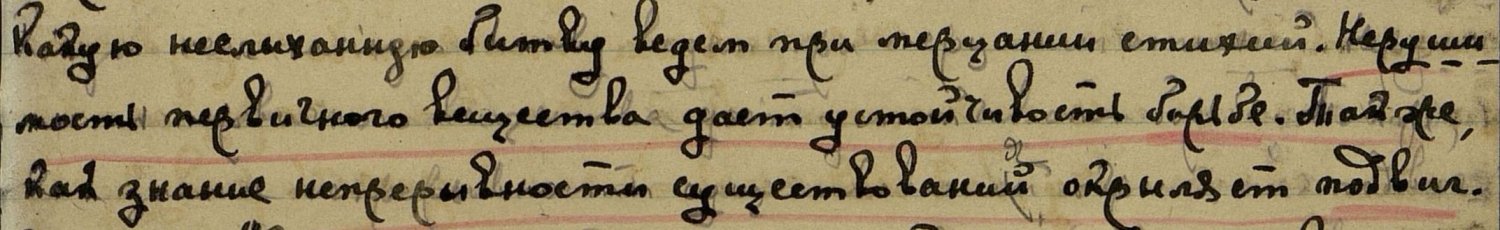 какую неслыханную битву ведем при мерцании стихий. Неруши
мость первичного вещества дает устойчивость борьбе. Так же,
как знание непрерывности существований окрыляет подвиг.